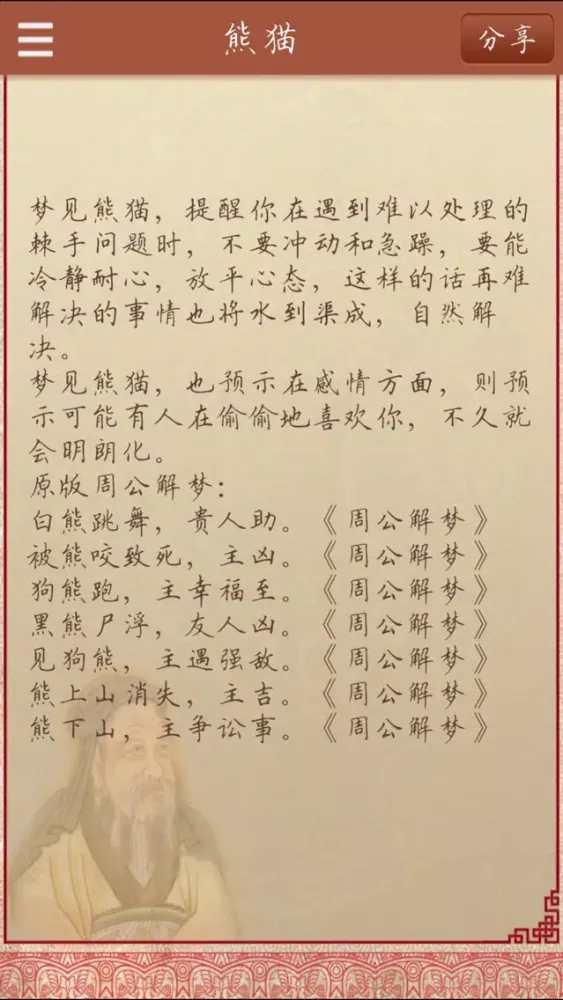 熊猫
分享
梦见熊猫，提醒你在遇到难以处理的
棘手问题时，不要冲动和急躁，要能
冷静耐心，放平心态，这样的话再难
解决的事情也将水到渠成，自然解
决。
梦见熊猫，也预示在感情方面，则预
示可能有人在偷偷地喜欢你，不久就
会明朗化。
原版周公解梦：
白熊跳舞，贵人助。《周公解梦》
被熊咬致死，主凶。《周公解梦》
狗熊跑，主幸福至。《周公解梦》
黑熊尸浮，友人凶。《周公解梦》
见狗熊，主遇强敌。《周公解梦》
熊上山消失，主吉。《周公解梦》
熊下山，主争讼事。《周公解梦》